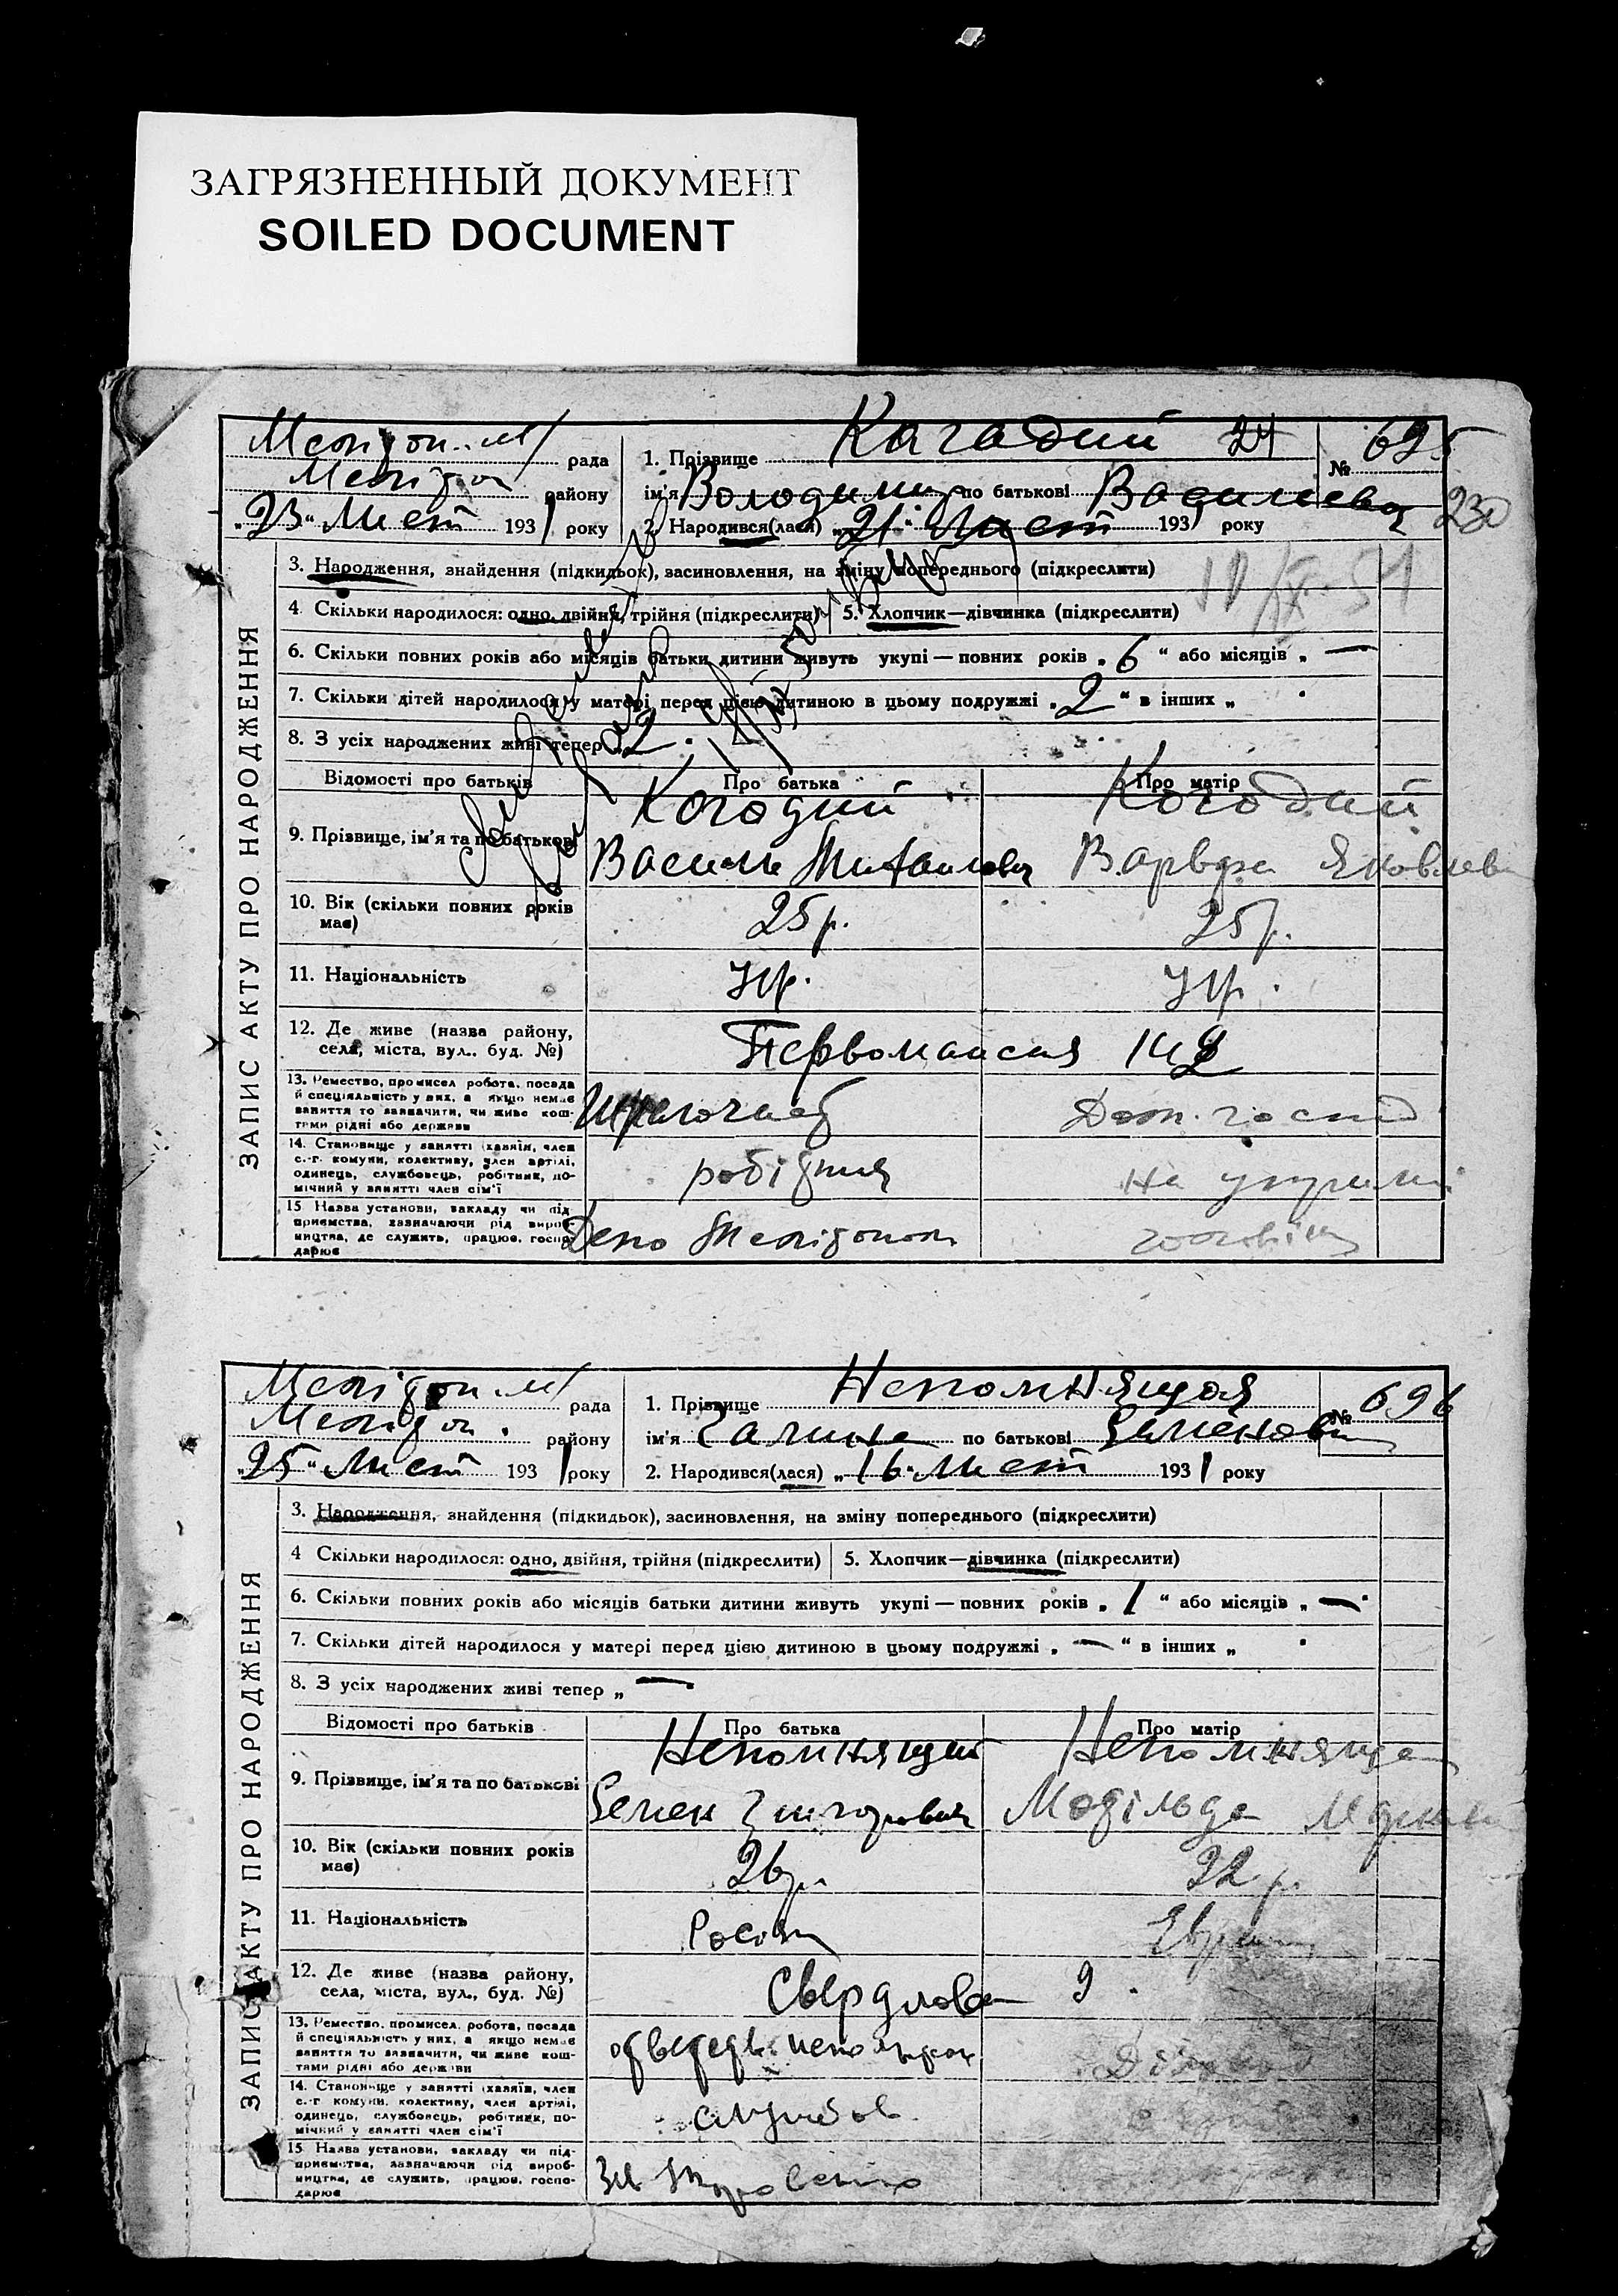 ЗАГРЯЗНЕННЫЙ ДОКУМЕНТ
SOILED DOCUMENT
ЗАПИС АКТУ ПРО НАРОДЖЕННЯ
Мелітоп. м/ рада
Мелітоп району
„23“ Лист 1931 року
1. Прізвище Кагадий 24 № 695
230
ім'я Володимир по батькові Васильевич
2. Народився(лася) „21“ Лист 1931 року
3. Народження, знайдення (підкидьок), засиновлення, на зміну попереднього (підкреслити)
4. Скільки народилося: одно, двійня, трійня (підкреслити) 5. Хлопчик—дівчинка (підкреслити)
6. Скільки повних років або місяців батьки дитини живуть укупі — повних років „6“ або місяців „ —
7. Скільки дітей народилося у матері перед цією дитиною в цьому подружжі „2“ в інших „
8. З усіх народжених живі тепер „2.
Відомості про батьків Про батька Про матір
9. Прізвище, ім'я та по батькові
Когодий Когодий
Василь Михайлович Варвара Яковлев
10. Вік (скільки повних років має) 25 р. 25 р.
11. Національність Укр. Укр.
12. Де живе (назва району, села, міста, вул., буд. №) Первомайська
13. Ремество, промисел робота, посада
й спеціяльність у них, а якщо немає
заняття то зазначити, чи живе кош-
тами рідні або держави
Дом. госпо
14. Становище у занятті (хазяїн, член
с.-г. комуни, колективу, член артілі,
одинець, службовець, робітник, по-
мічний у занятті член сім'ї
робітник На утриман
15. Назва установи, закладу чи під-
приємства, зазначаючи рід вироб-
ництва, де служить, працює, госпо-
дарює
Депо Мелітополь чоловіка
ЗАПИС АКТУ ПРО НАРОДЖЕННЯ
Мелітоп. м/ рада
Мелітоп. району
„25“ Лист 1931 року
1. Прізвище Непомнящая № 696
ім'я Галина по батькові Семеновн
2. Народився(лася) „16“ Лист 1931 року
3. Народження, знайдення (підкидьок), засиновлення, на зміну попереднього (підкреслити)
4 Скільки народилося: одно, двійня, трійня (підкреслити) 5. Хлопчик—дівчинка (підкреслити)
6. Скільки повних років або місяців батьки дитини живуть укупі — повних років „1“ або місяців „ —
7. Скільки дітей народилося у матері перед цією дитиною в цьому подружжі „ — “ в інших „
8. З усіх народжених живі тепер „ —
Відомості про батьків Про батька Про матір
9. Прізвище, ім'я та по батькові
Непомнящий Непомняща
Семен Григорович Матільда
10. Вік (скільки повних років має) 26 р. 22 р.
11. Національність Росіян Евреи
12. Де живе (назва району, села, міста, вул., буд. №) Свердлова 9.
13. Ремество, промисел, робота, посада
й спеціяльність у них, а якщо немає
заняття то зазначити, чи живе кош-
тами рідні або держави
14. Становище у занятті (хазяїн, член
с.-г. комуни, колективу, член артілі,
одинець, службовець, робітник, по-
мічний у занятті член сім'ї
службов.
15. Назва установи, закладу чи під-
приємства, зазначаючи рід вироб-
ництва, де служить, працює, госпо-
дарює